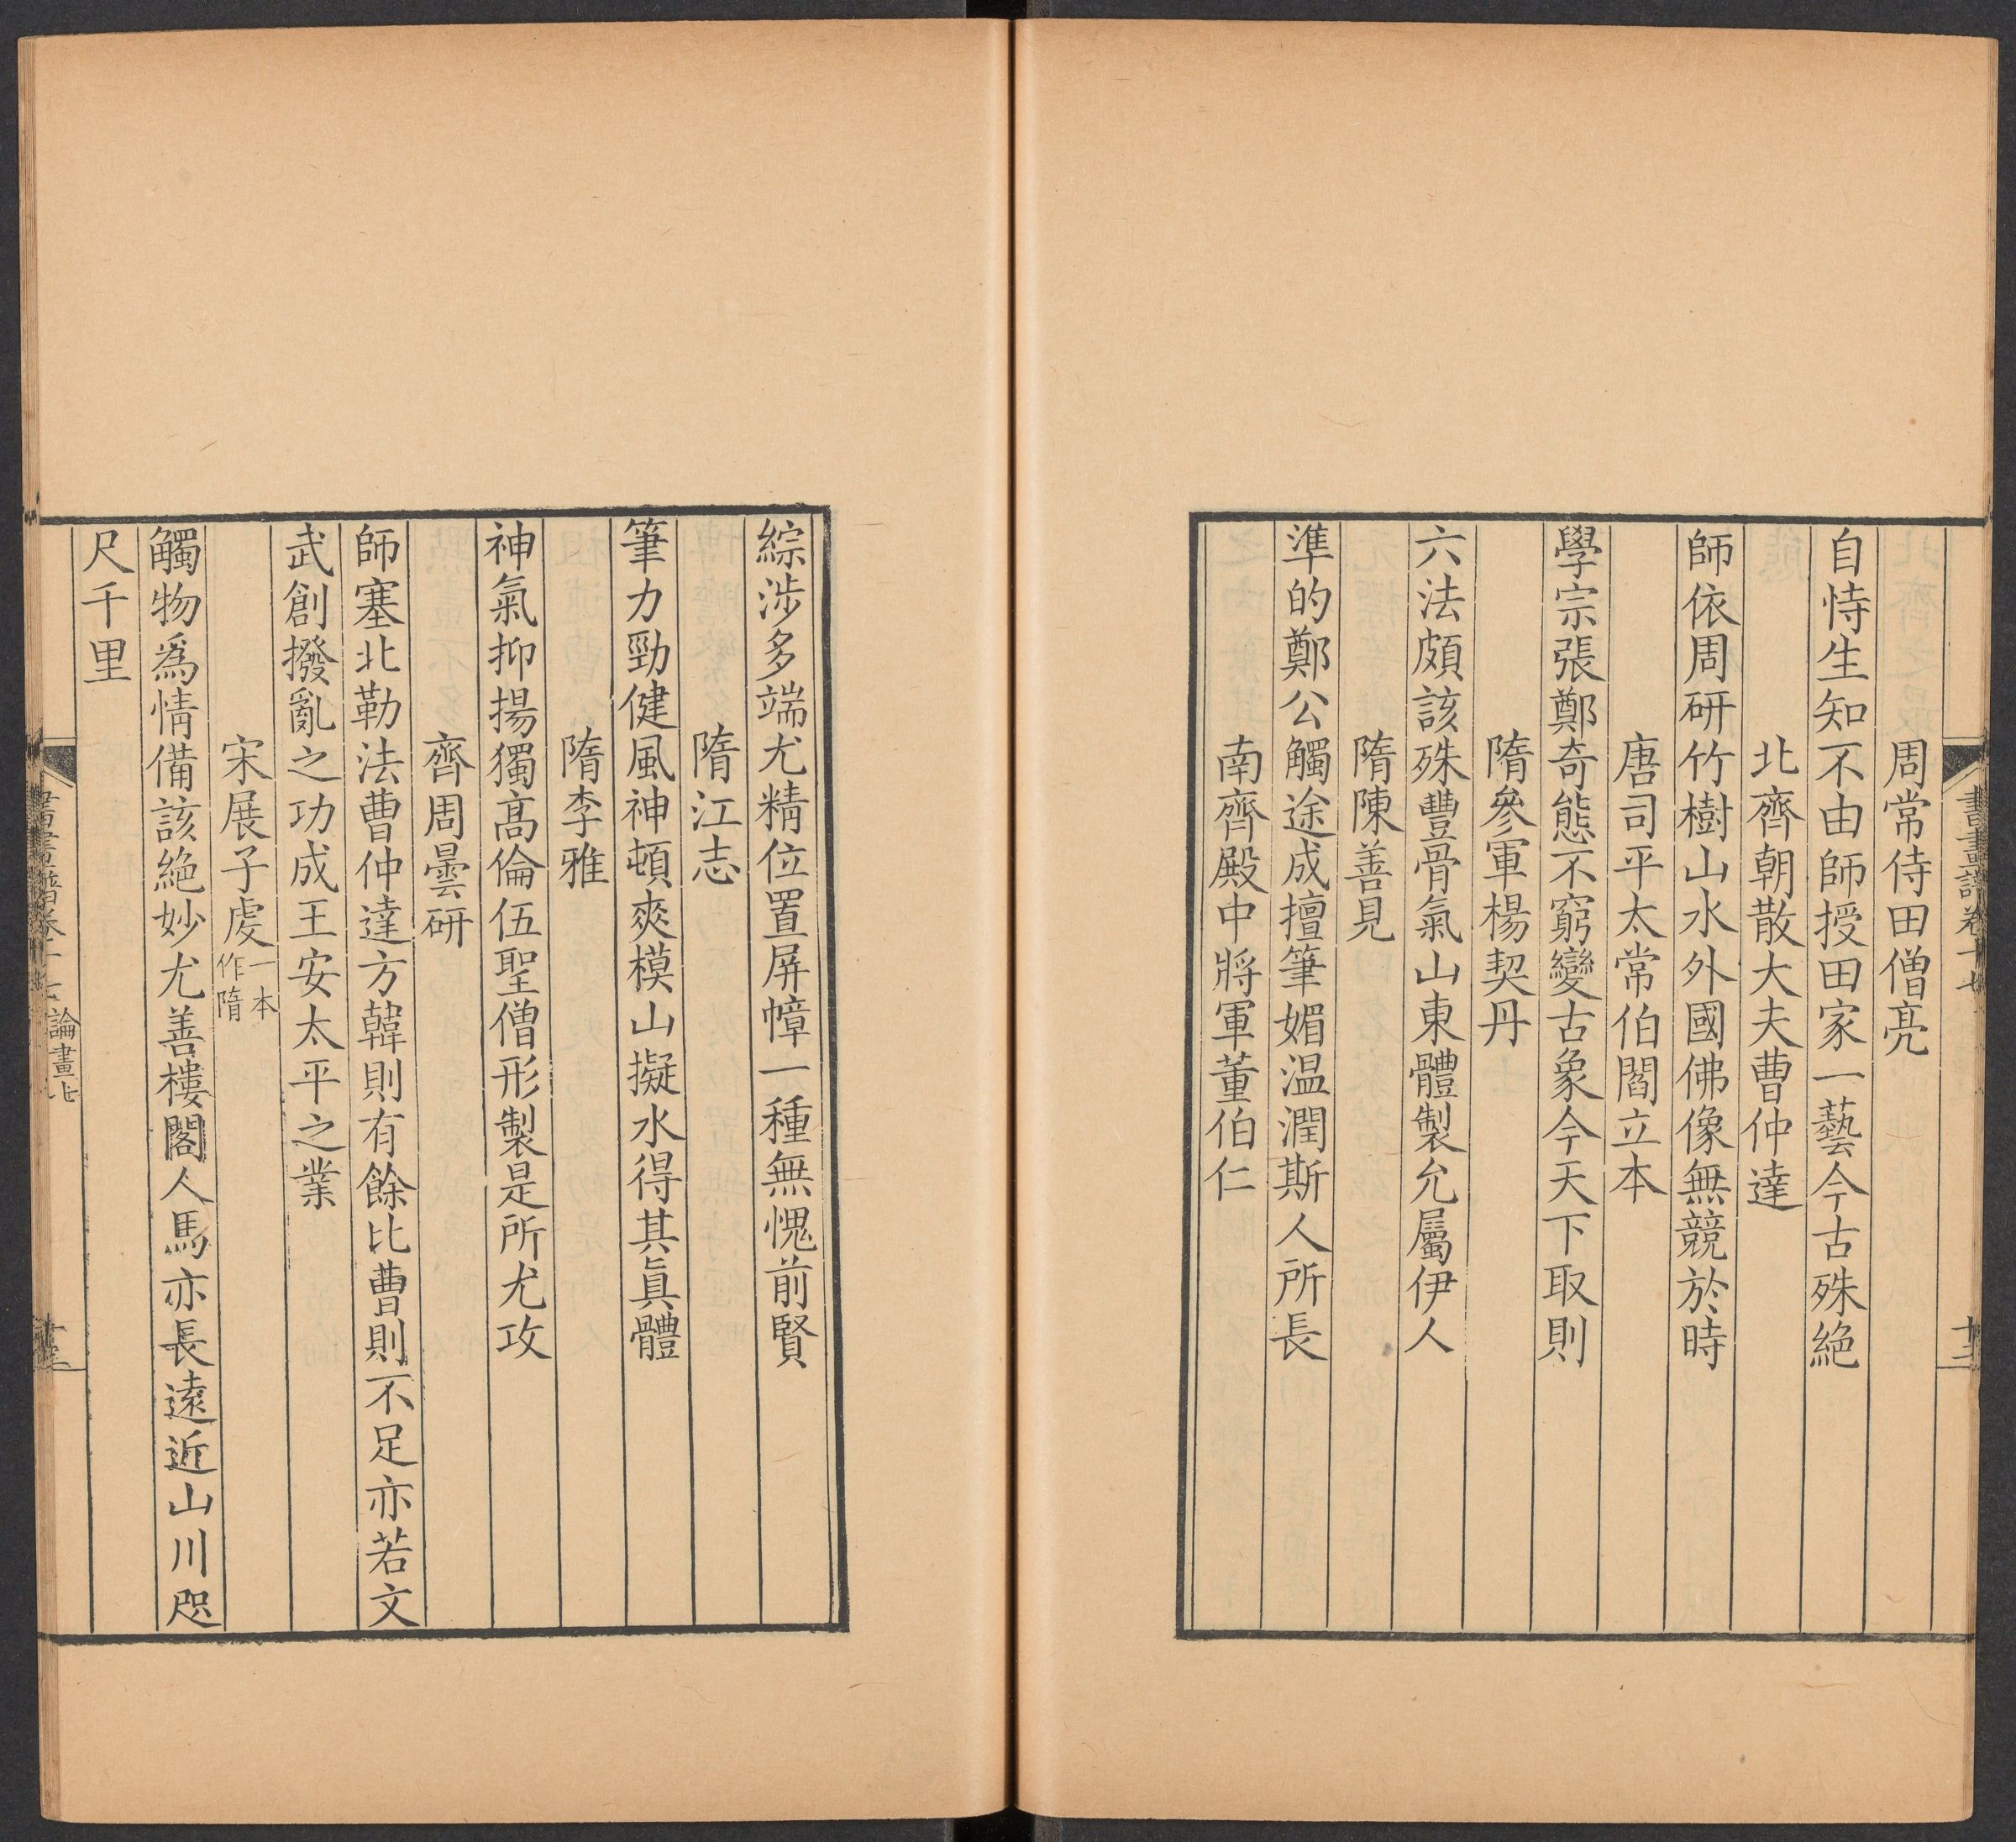 周常侍田僧亮
自恃生知不由師授田家一藝今古殊絶
北齊朝散大夫曹仲達
師依周研竹樹山水外國佛像無競於時
唐司平太常伯閻立本
學宗張鄭奇態不窮變古象今天下取則
隋參軍楊契丹
六法頗該殊豐骨氣山東體製允屬伊人
隋陳善見
準的鄭公觸途成擅筆媚温潤斯人所長
南齊殿中將軍董伯仁
綜涉多端尤精位置屏幛一種無愧前賢
隋江志
筆力勁健風神頓爽模山擬水得其眞體
隋李雅
神氣抑揚獨髙倫伍聖僧形製是所尤攻
齊周曇研
師塞北勒法曹仲達方韓則有餘比曹則不足亦若文
武創撥亂之功成王安太平之業
宋展子虔一本作隋
觸物爲情備該絶妙尤善樓閣人馬亦長遠近山川咫
尺千里
論畫七